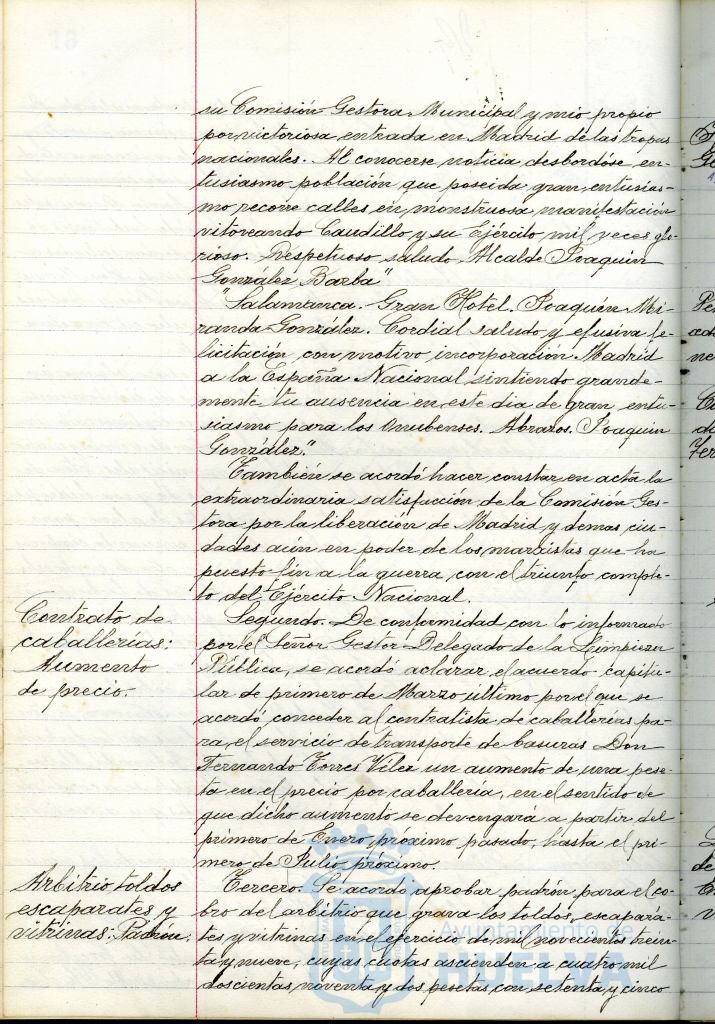 su Comisión Gestora Municipal y mio propio
por victoriosa entrada en Madrid de las tropas
nacionales. Al conocerse noticia desbordóse en-
tusiasmo población que poseida gran entusias-
mo recorre calles en monstruosa manifestación
vitoreando Caudillo y su Ejército mil veces glo-
rioso. Respetuoso saludo. Alcalde Joaquin
González Barba"
"Salamanca. Gran Hotel. Joaquín Mi-
randa González. Cordial saludo y efusiva fe-
licitación con motivo incorporación Madrid
a la España Nacional sintiendo grande-
mente tu ausencia en este dia de gran entu-
siasmo para los Onubenses. Abrazos. Joaquin
González."
También se acordó hacer constar en acta la
extraordinaria satisfacción de la Comisión Ges-
tora por la liberación de Madrid y demas ciu-
dades aún en poder de los marxistas que ha
puesto fin a la guerra con el triunfo comple-
to del Ejército Nacional.
Contrato de
caballerías:
Aumento
de precio.
Segundo. De conformidad con lo informado
por el Señor Gestor Delegado de la Limpieza
Pública, se acordó aclarar el acuerdo capitu-
lar de primero de Marzo último por el que se
acordó conceder al contratista de caballerías pa-
ra el servicio de transporte de basuras Don
Fernando Torres Vélez un aumento de una pese-
ta en el precio por caballería, en el sentido de
que dicho aumento se devengará a partir del
primero de Enero próximo pasado, hasta el pri-
mero de Julio próximo.
Arbitrio toldos
escaparates y
vitrinas: Padrón.
Tercero. Se acordó aprobar padrón para el co-
bro del arbitrio que grava los toldos, escapara-
tes y vitrinas en el ejercicio de mil novecientos trein-
ta y nueve, cuyas cuotas ascienden a cuatro mil
doscientas noventa y dos pesetas con setenta y cinco
Ayuntamiento de
HUELVA